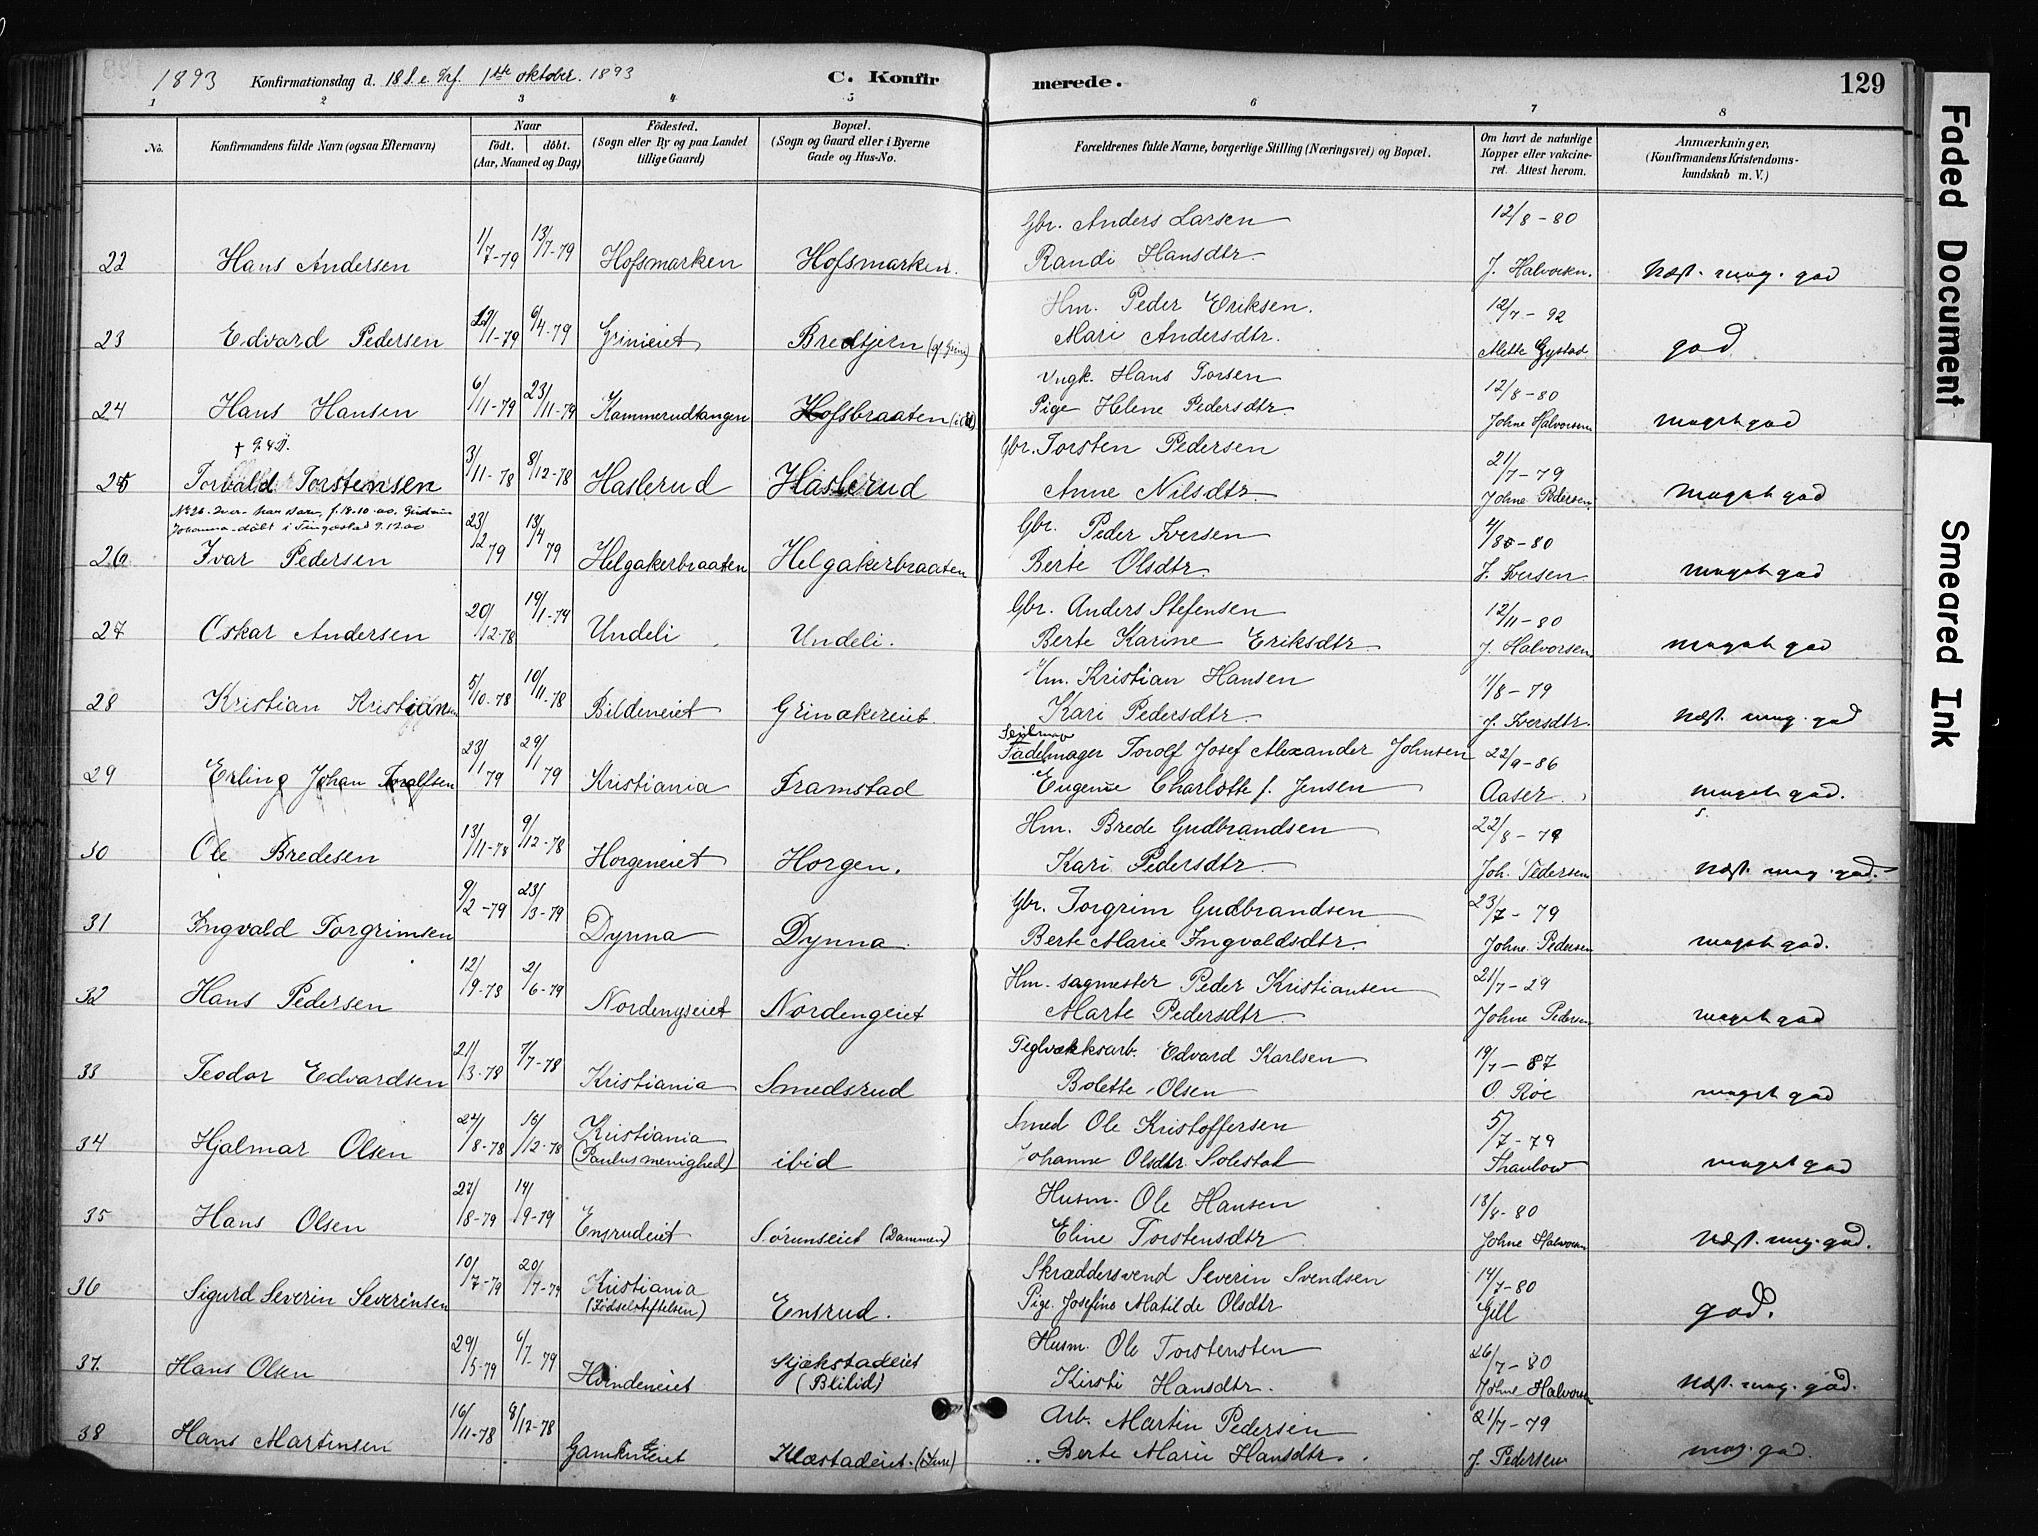 1893 Konfirmationsdag d. 18 S. e. Trf. 1ste oktober. 1893 C. Konfirmerede. 129
1 2 3 4 5 6 7 8
No. Konfirmandens fulde Navn (ogsaa Efternavn) Naar födt. döbt. (Aar, Maaned og Dag) Födested. (Sogn eller By og paa Landet tillige Gaard) Bopæl. (Sogn og Gaard eller i Byerne Gade og Hus-No. Forældrenes fulde Navne, borgerlige Stilling (Næringsvei) og Bopæl. Om havt de naturlige Kopper eller vakcineret. Attest herom. Anmærkninger, (Konfirmandens Kristendomskundskab m. V.)
Gbr. Anders Larsen 12/8-80
22 Hans Andersen 1/7-79 13/7-79 Hofsmarken Hofsmarken. Randi Hansdtr J. Halvorsen. Næst. meg. god
Hm. Peder Eriksen. 12/7-92
23 Edvard Pedersen 12/1-79 6/4-79 Grinieiet Bredtjern Mari Andersdtr. Mette Gystad god
Ungk. Hans Torsen 12/8-80
24 Hans Hansen 6/11-79 23/11-79 Kammerudtangen Hofsbraaten Pige Helene Pedersdtr Johne Halvorsen meget god
Gbr. Torsten Pedersen 21/7-79
25 Torvald Torstensen 3/11-78 8/12-78 Haslerud Haslerud Anne Nilsdtr. Johne Pedersen. meget god
Gbr. Peder Iversen
26 Ivar Pedersen 23/2 79 13/4 79 Helgakerbraaten Helgakerbraaten Berte Olsdtr. J. Iversen meget god
Gbr. Anders Stefensen 12/11-80
27 Oskar Andersen 20/12-78 19/1-79 Undeli Undeli. Berte Karine Eriksdtr J. Halvorsen. meget god
Hm. Kristian Hansen
28 Kristian Kristiansen 5/10-78 10/11-78 Bildeneiet Grinakereiet. Kari Pedersdtr J. Iversdtr. Næst. meg. god
Sejlmag
Sadelmager Torolf Josef Alexander Johnsen 22/9-86
29 Erling Johan Toralfsen 23/1 79 29/1 79 Kristiania Framstad Eugenie Charlotte f. Jensen Aaser. meget god.
Hm. Brede Gudbrandsen 22/8-79
30 Ole Bredesen 13/11-78 9/12-78 Horgeneiet Horgen. Kari Pedersdtr. Joh. Pedersen Næst. meg. god.
Gbr. Torgrim Gudbrandsen 23/7-79
31 Ingvald Torgrimsen 9/2-79 23/3-79 Dynna Dynna. Berte Marie Ingvaldsdtr. Johne. Pedersen meget god.
Hm. sagmester Peder Kristiansen 21/7-29
32 Hans Pedersen 12/9-78 2/6-79 Nordengseiet Nordengeiet Marte Pedersdtr. Johne Pedersen meget god
Teglværksarb. Edvard Karlsen 19/7-87
33 Teodor Edvardsen 21/3-78 7/7-78 Kristiania Smedsrud Bolette Olsen O. Röe meget god
Smed Ole Kristoffersen 5/7-79
34 Hjalmar Olsen 22/8-78 15/12-78 Kristiania (Paulus menighed) ibid Johanne Olsdtr. Solestad Thaulow meget god
Husm. Ole Hansen 13/8-80
35 Hans Olsen 27/8-79 14/9-79 Ensrudeiet Sörumseiet (Dammen) Eline Torstensdtr Johne Halvorsen Næst. meg. god.
Skræddersvend Severin Svendsen 14/7-80
36 Sigurd Severin Severinsen 10/7-79 20/7-79 Kristiania (Födselstiftelsen) Ensrud. Pige. Josefine Matilde Olsdtr Gill god.
Husm. Ole Torstensten 26/7-80
37. Hans Olsen 29/5-79 6/7-79 Hvindeneiet (Blilid) Kirsti Hansdtr. Johne Halvorsen Næst. meg. god.
Arb. Martin Pedersen 21/7-79
38 Hans Martinsen 16/11-78 8/12-78 Gamkineiet Klæstadeiet. Berte Marie Hansdtr. J. Pedersen meg. god.
Faded Document
Smeared Ink